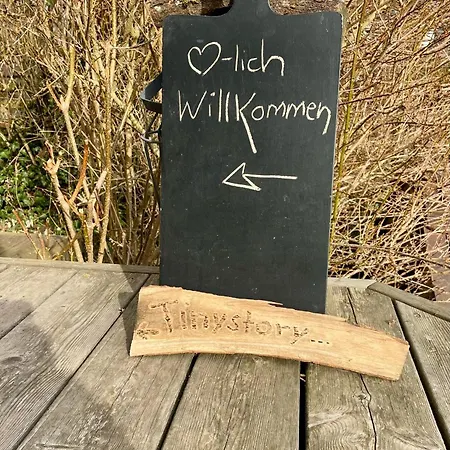 ♡-lich
Willkommen,
←
Tinystory...